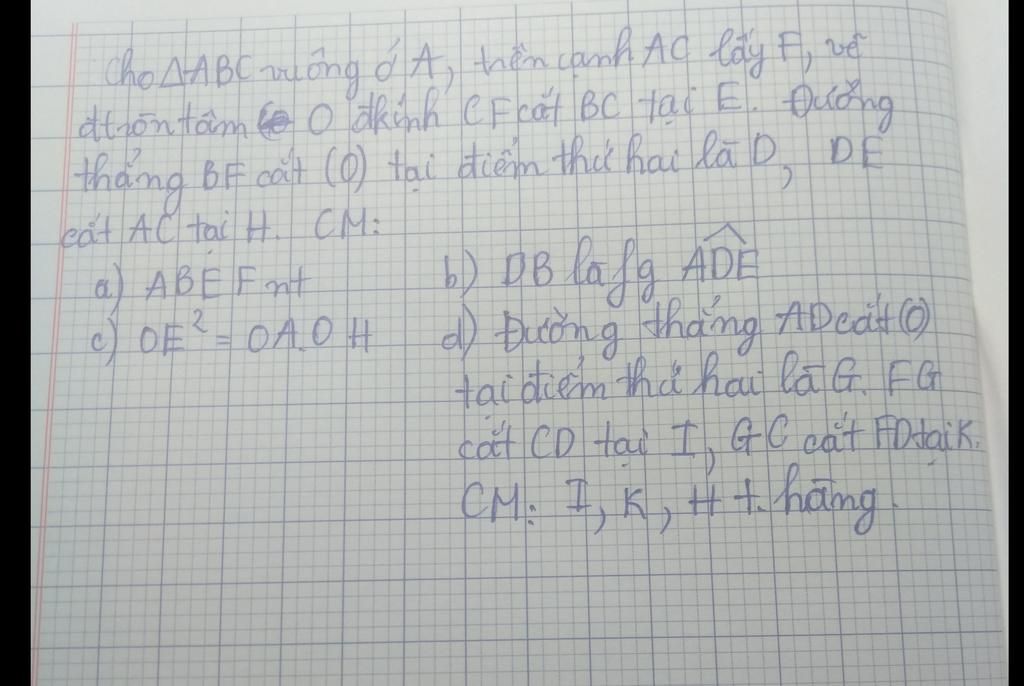 Cho ΔABC vuông ở A, trên cạnh AC lấy F, vẽ
đtròn tâm O đkính CF cắt BC tại E. Đường
thẳng BF cắt (O) tại điểm thứ hai là D, DE
cắt AC tại H. CM:
a) ABEF nt b) DB là fg \widehat{ADE}
c) OE² = OA.OH d) Đường thẳng AD cắt (O)
tại điểm thứ hai là G. FG
cắt CD tại I, GC cắt FD tại K.
CM: I, K, H t. hàng.